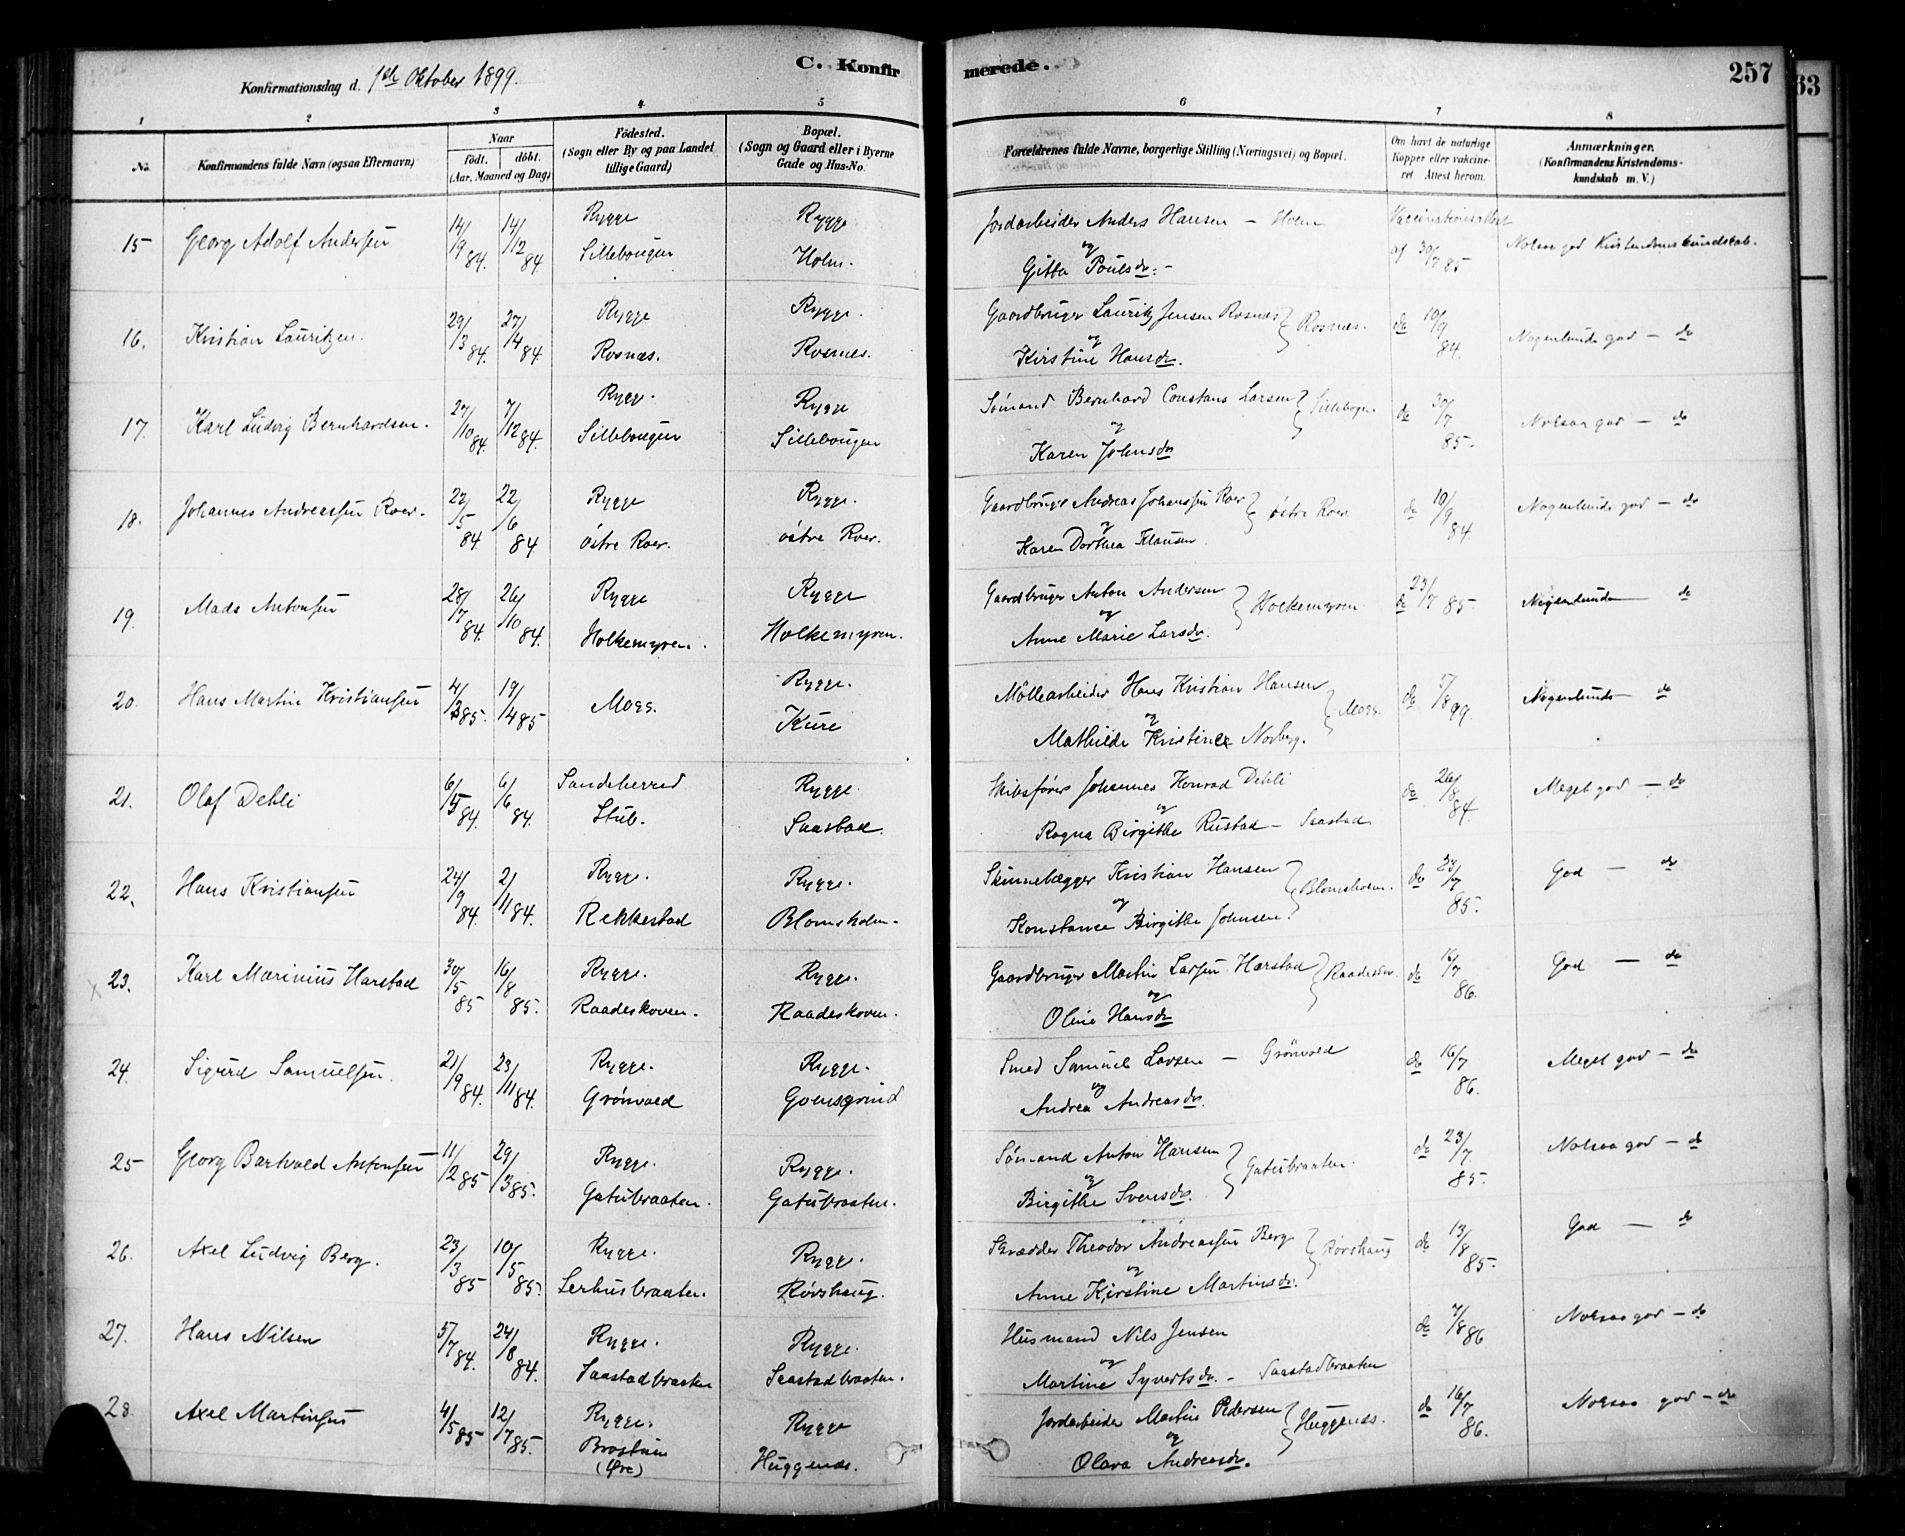 Konfirmationsdag d. 1ste Oktober 1899. C. Konfirmerede. 257
63
1 2 3 4 5 6 7 8
No. Konfirmandens fulde Navn (ogsaa Efternavn) Naar født. døbt. (Aar, Maaned og Dag) Födested. (Sogn eller By og paa Landet tillige Gaard) Bopæl. (Sogn og Gaard eller i Byerne Gade og Hus-No. Forældrenes fulde Navne, borgerlige Stilling (Næringsvei) og Bopæl. Om havt de naturlige Kopper eller vakcineret Attest herom. Anmærkninger. (Konfirmandens Kristendomskundskab m. V.)
15 Georg Adolf Andersen 14/9 84. 14/12 84 Rygge Sillebougen Rygge Holm. Jordarbeider Anders Hansen – Holm og Gitta Poulsdr. - Vaccinationsattest af 30/7 85 Nolsaa god Kristendomskundskab.
16. Kristian Lauritzen. 29/3 84. 27/4 84 Rygge Rosnæs. Rygge. Rosnæs. Gaardbruger Lauritz Jensen Rosnæs og Kirstine Hansdr. } Rosnæs. do 10/9 84. Nogenlunde god – do
17. Karl Ludvig Bernhardsen. 27/10 84. 7/12 84. Rygge. Sillebougen Rygge Sillebougen Sømand Bernhard Constans Larsen og Karen Johnsdr } Sillebogen do 30/7 85. Nolsaa god – do
18. Johannes Andreassen Roer. 22/5 84. 22/6 84 Rygge østre Roer. Rygge. østre Roer. Gaardbruger Andreas Johanssen Roer og Karen Dorthea Klausen } østre Roer do 10/9 84. Nogenlunde god – do
19. Mads Antonsen 28/7 84. 26/10 84. Rygge Holkemyren. Rygge Holkemyren. Gaardbruger Anton Andersen og Anne Marie Larsdr. } Holkemyren do 23/7 85. Nogenlunde do
20. Hans Martin Kristiansen 4/3 85. 19/4 85 Moss. Rygge. Kure Møllearbeider Hans Kristian Hansen og Mathilde Kristine Norberg. } Moss. do 5/8 99. Nogenlunde do
21. Olaf Dehli 6/5 84. 6/6 84. Sandeherred Stub. Rygge. Saastad. Skibsfører Johannes Konrad Dehli og Ragna Birgithe Rustad – Saastad do 26/8 84. Meget god – do
22. Hans Kristiansen 24/9 84 2/11 84. Rygge. Rekkestad Rygge. Blomsholm. Skinnelægger Kristian Hansen og Konstance Birgithe Johnsen. } Blomsholm. do 23/7 85. God – do
x 23. Karl Marinius Harstad 30/5 85 16/8 85. Rygge. Raadeskoven. Rygge. Raadeskoven. Gaardbruger Martin Larsen Harstad og Oline Hansdr } Raadeskv. do 16/7 86. God – do
24. Sigurd Samuelsen. 21/9 84. 23/11 84. Rygge. Grønvold Rygge. Goensgrind Smed Samuel Larsen – Grønvold og Andrea Andreasdr. do 16/7 86. Meget god – do
25 Georg Bartvald Antonsen 11/2 85 29/3 85. Rygge. Gatubraaten. Rygge. Gatubraaten. Sømand Anton Hansen og Birgithe Svensdr. } Gatubraaten. do 23/7 85. Nolsaa god – do
26. Axel Ludvig Berg. 23/3 85 10/5 85. Rygge. Lerhusbraaten. Rygge. Rørshaug. Skrædder Theodor Andreassen Berg og Anne Kirstine Martinsdr. } Rørshaug do 13/8 85. God – do
27. Hans Nilsen 5/7 84. 24/8 84. Rygge. Saastadbraaten Rygge. Saastadbraaten. Husmand Nils Jensen og Martine Syvertsdr. – Saastadbraaten do 7/8 86 Nolsaa god – do
28. Axel Martinsen 4/5 85 12/7 85. Rygge. Brostuen (Øre) Rygge Huggenæs. Jordarbeider Martin Pedersen og Olava Andreasdr. } Huggenæs. do 16/7 86. Nolsaa god – do